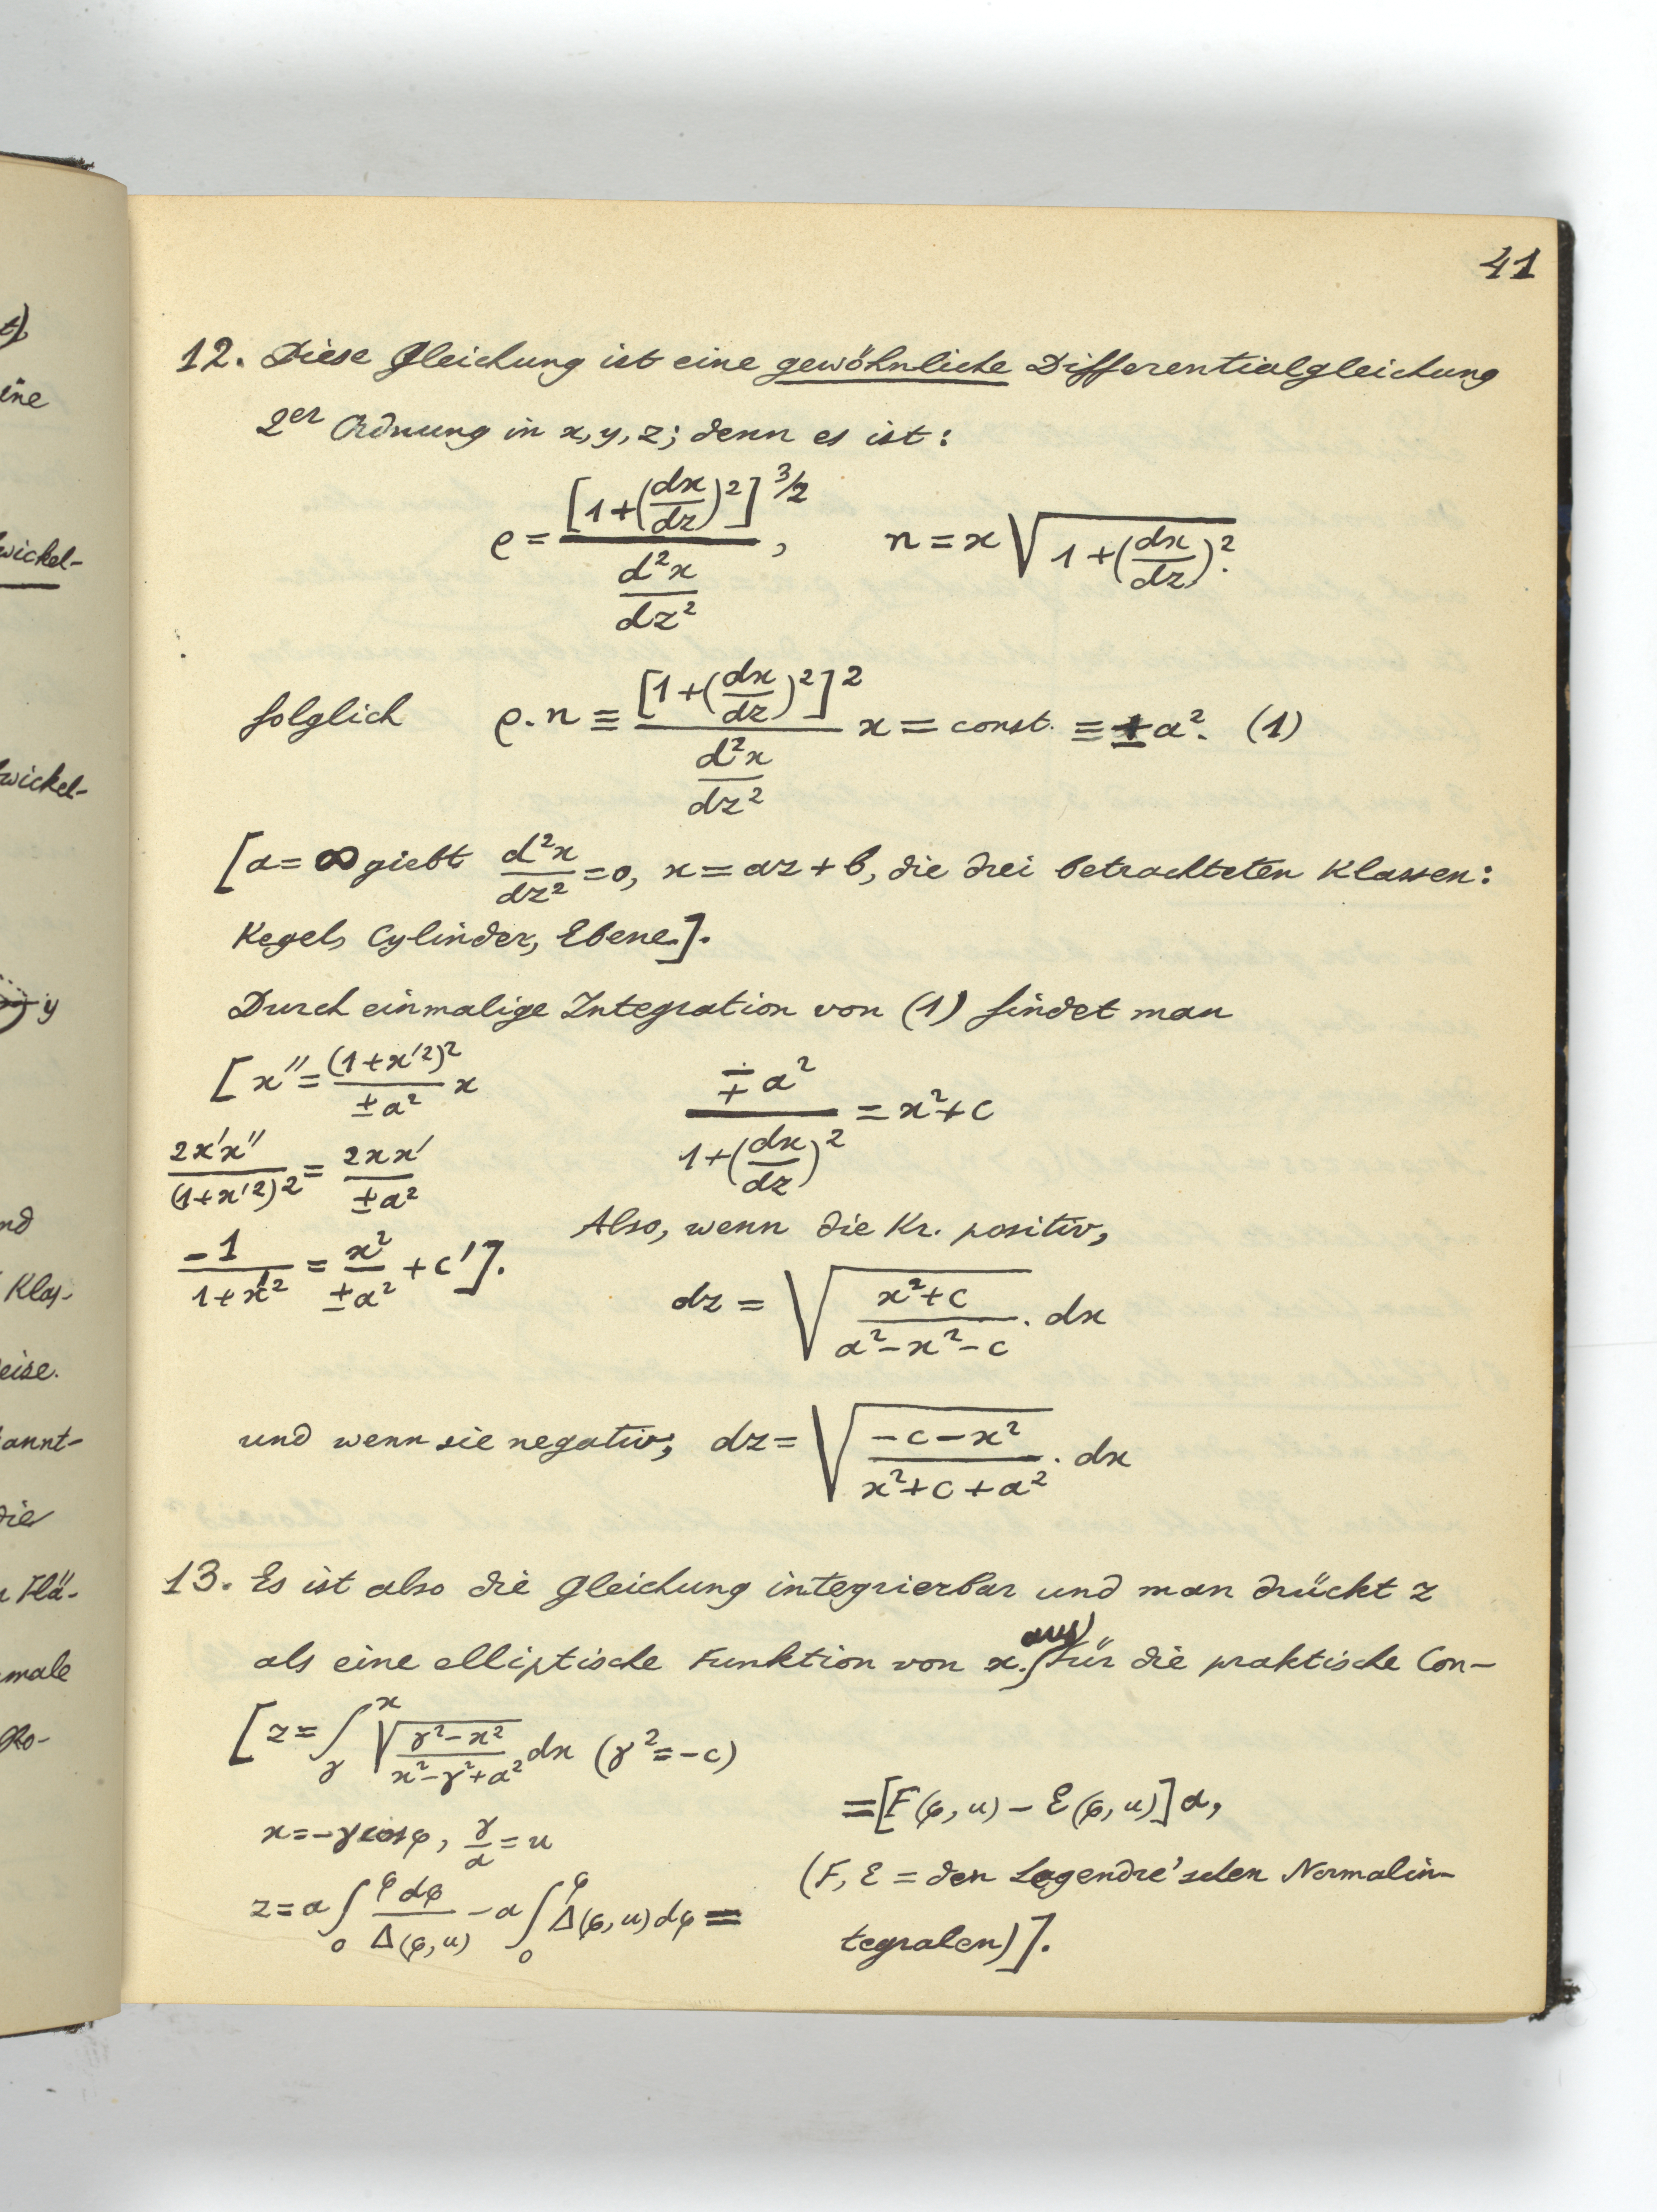 41
12. Diese Gleichung ist eine gewöhnliche Differentialgleichung
2er Ordnung in x, y, z; denn es ist:
ρ = [1+(dx/dz)²]^3/2 / (d²x/dz²), n = x√(1+(dx/dz)²).
folglich ρ.n ≡ [1+(dx/dz)²]² / (d²x/dz²) x = const. ≡ ±a². (1)
[a = ∞ giebt d²x/dz² = 0, x = az + b, die drei betrachteten Klassen:
Kegel, Cylinder, Ebene.].
Durch einmalige Integration von (1) findet man
[x'' = (1+x'²)²/±a² x
2x'x''/(1+x'²)² = 2xx'/±a²
-1/(1+x'²) = x²/±a² + c'].
∓a² / (1+(dx/dz)²) = x²+c
Also, wenn die Kr. positiv,
dz = √((x²+c)/(a²-x²-c)) . dx
und wenn sie negativ; dz = √((-c-x²)/(x²+c+a²)) . dx
13. Es ist also die Gleichung integrierbar und man drückt z
als eine elliptische Funktion von x aus. Für die praktische Con-
[z = ∫_γ^x √((γ²-x²)/(x²-γ²+a²)) dx (γ² = -c)
x = -γ cos φ, γ/a = u
z = a∫_0^φ dφ/Δ(φ,u) - a∫_0^φ Δ(φ,u)dφ =
= [F(φ,u) - E(φ,u)] a,
(F, E = den Legendre'schen Normalin-
tegralen)].
t)
eine
wickel-
wickel-
y
nd
Klas-
eise.
kannt-
die
Flä-
male
Ro-